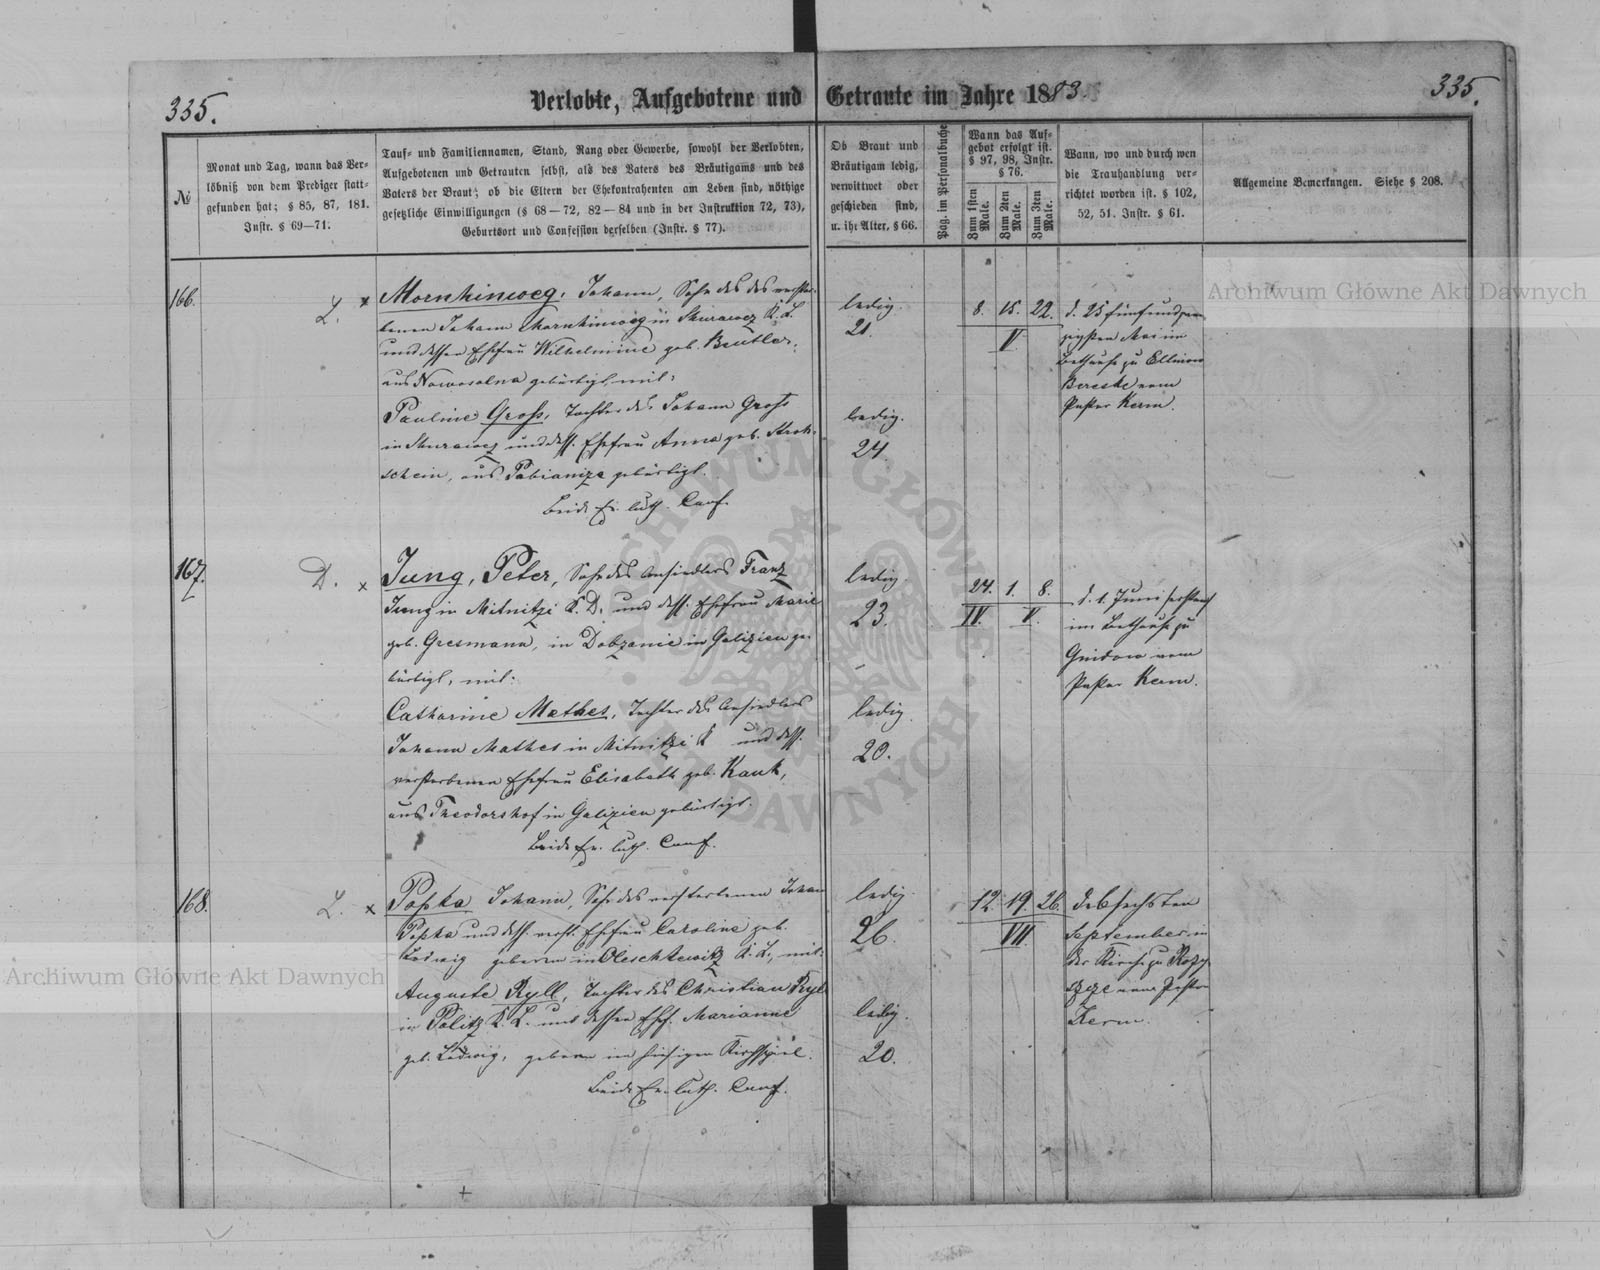 335.
Verlobte, Aufgebotene und Getraute im Jahre 1883.
335.
№
Monat und Tag, wann das Ver-
löbniß von dem Prediger statt-
gefunden hat; § 85, 87, 181.
Instr. § 69—71.
Tauf- und Familiennamen, Stand, Rang oder Gewerbe, sowohl der Verlobten,
Aufgebotenen und Getrauten selbst, als des Vaters des Bräutigams und des
Vaters der Braut; ob die Eltern der Ehekontrahenten am Leben sind, nöthige
gesetzliche Einwilligungen (§ 68—72, 82—84 und in der Instruktion 72, 73),
Geburtsort und Confession derselben (Instr. § 77).
Ob Braut und
Bräutigam ledig,
verwittwet oder
geschieden sind,
u. ihr Alter, § 66.
Pag. im Personalbuche
Wann das Auf-
gebot erfolgt ist.
§ 97, 98, Instr.
§ 76.
Zum 1sten Male.
Zum 2ten Male.
Zum 3ten Male.
Wann, wo und durch wen
die Trauhandlung ver-
richtet worden ist. § 102,
52, 51. Instr. § 61.
Allgemeine Bemerkungen. Siehe § 208.
166.
L. x
Mornhinweg, Johann, Sohn des verstor-
benen Johann Mornhinweg in Skurawez K. L.
und dessen Ehefrau Wilhelmine geb. Beutler,
aus Nowosolna gebürtigt, mit:
Pauline Gross, Tochter des Johann Gross
in Skurawez und dess. Ehefrau Anna geb. Stroh-
schein, aus Pabianize gebürtigt.
Beide Ev. luth. Conf.
ledig.
21.
ledig.
24.
8. 15. 22.
V
d. 25 fünfundzwan-
zigsten Mai im
Bethause zu
vom
Pastor Kerm.
167.
D. x
Jung, Peter, Sohn des Ansiedlers Franz
Jung in Mitnitzi K. D. und dess. Ehefrau Marie
geb. Gresmann, in Dobzanie in Galizien ge-
bürtigt, mit:
Catharine Mathes, Tochter des Ansiedlers
Johann Mathes in Mitnitzi K und dess.
verstorbenen Ehefrau Elisabath geb. Kauk,
aus Theodorshof in Galizien gebürtigt.
Beide Ev. luth. Conf.
ledig.
23.
ledig.
20.
24. 1. 8.
IV. V.
d. 1. Juni
im Bethause zu
vom
Pastor Kerm.
168.
L. x
Popka Johann, Sohn des verstorbenen Johann
Popka und dess. verst. Ehefrau Caroline geb.
Ludwig geboren in Oleschkewitz K. L., mit:
Auguste Ryll, Tochter des Christian Ryll
in Politz K. L. und dessen Ehef. Marianne
geb. Ludwig, geboren im hiesigen Kirchspiel.
Beide Ev. luth. Conf.
ledig.
26.
ledig.
20.
12. 19. 26.
VII.
d. 6 sechsten
September in
der Kirche zu
vom Pastor
Kerm.
Archiwum Główne Akt Dawnych
Archiwum Główne Akt Dawnych
ARCHIWUM GŁÓWNE AKT DAWNYCH